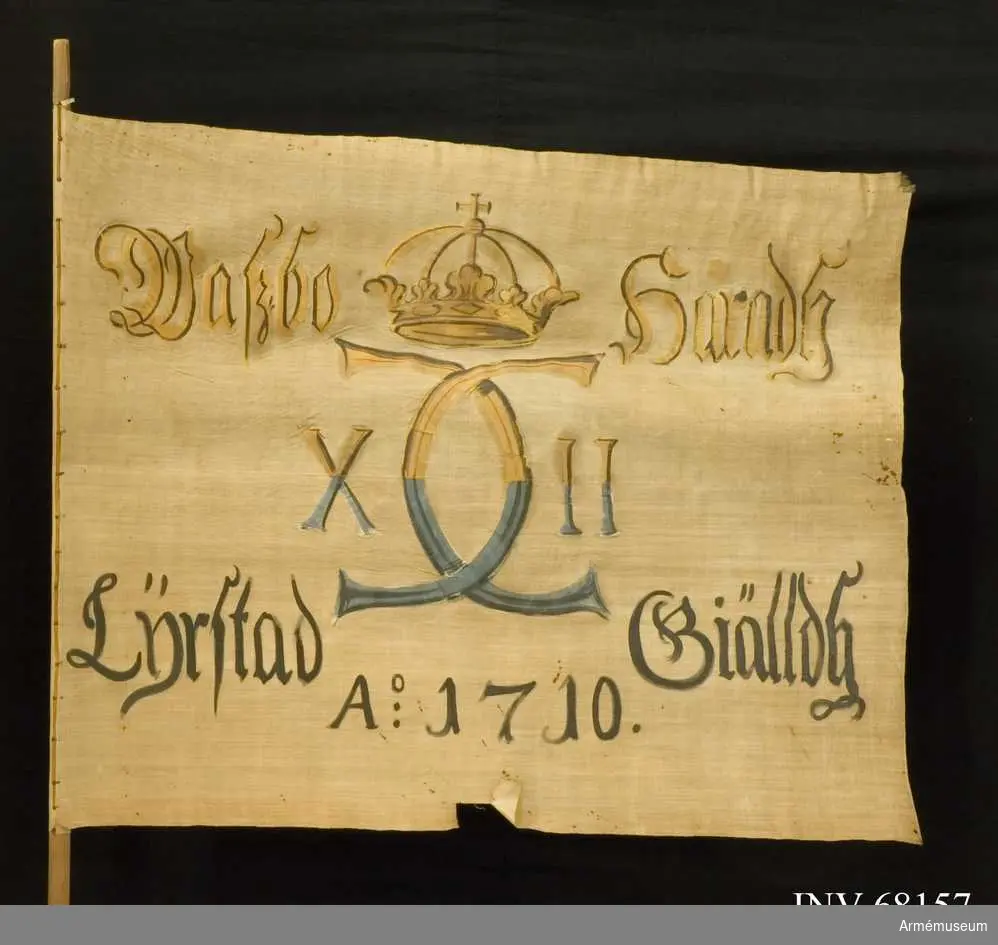 Waszbo Häradh
X CC II
Lÿrstad Giälldh
Aº: 1710.
INV 68157
Armémuseum